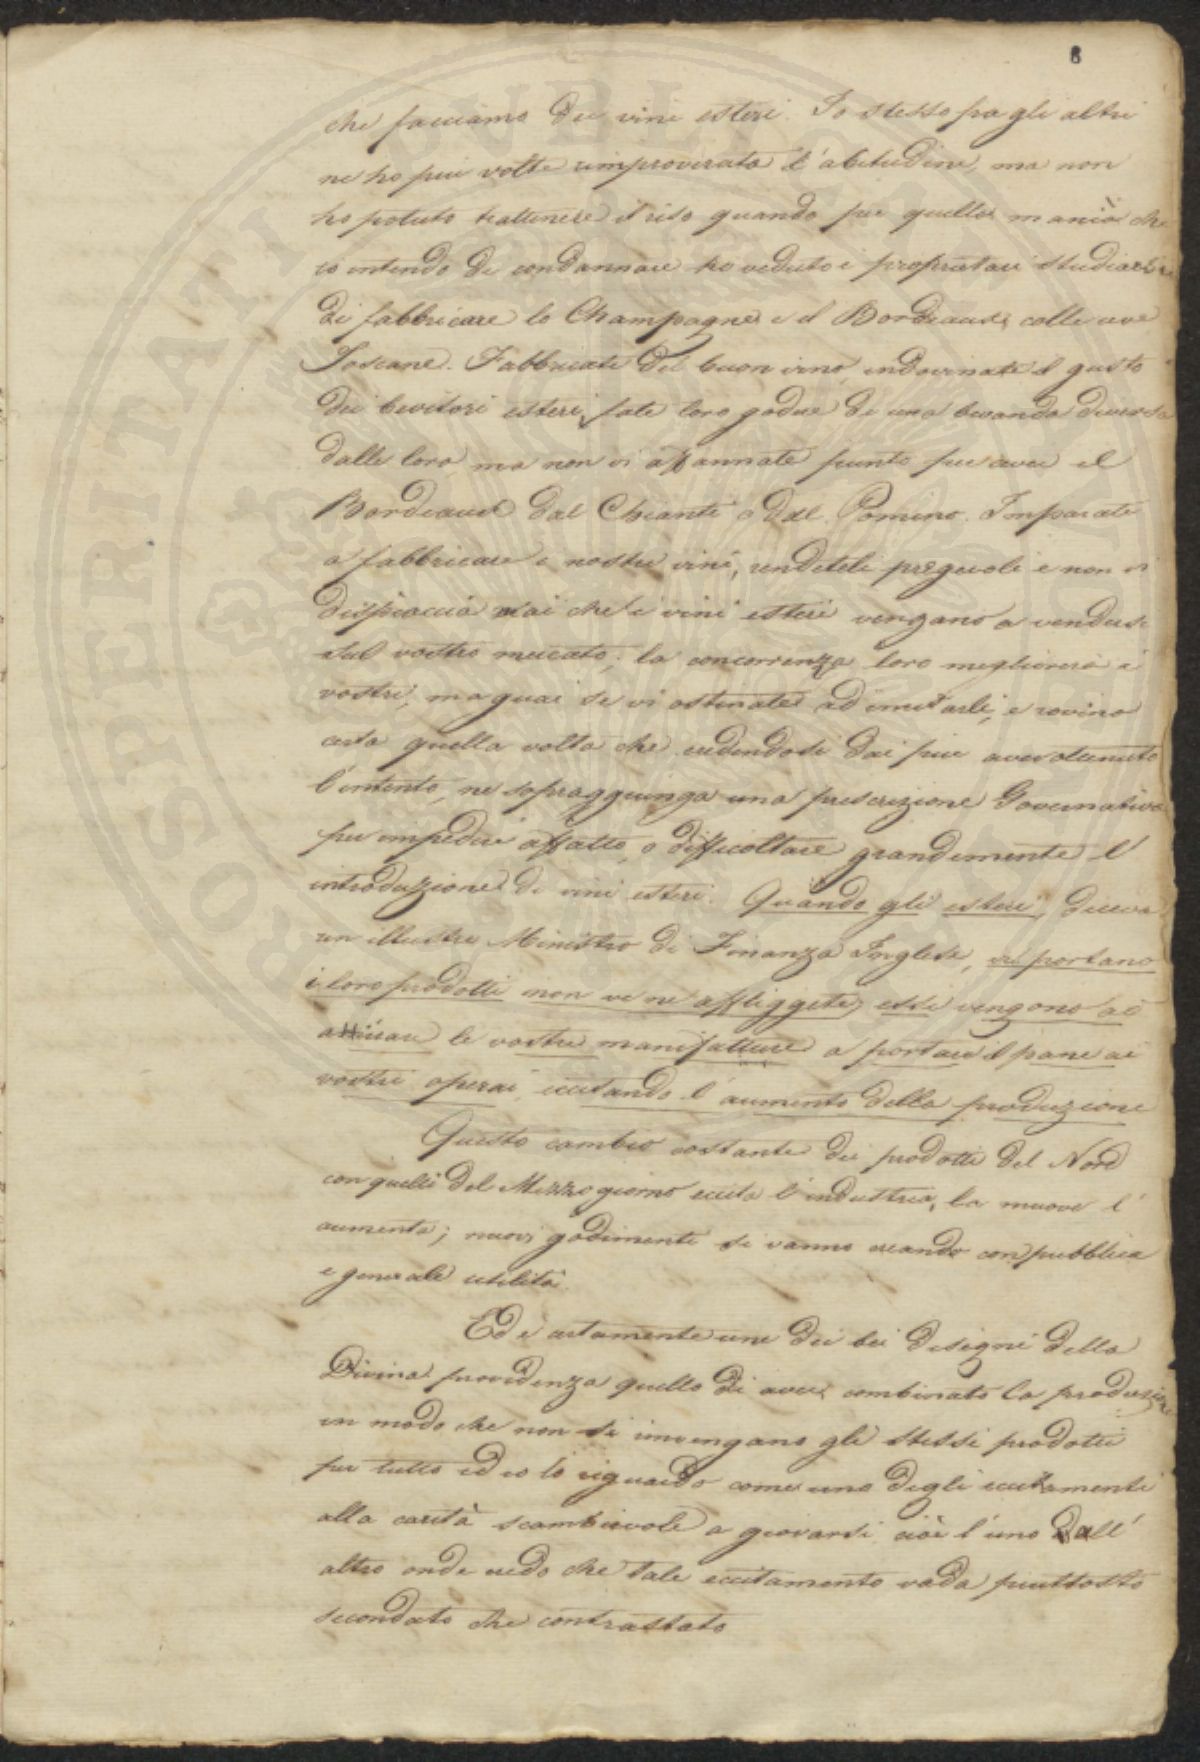 8
che facciamo dei vini esteri. Io stesso fra gli altri
ne ho piu volte rimproverata l'abitudine, ma non
ho potuto trattenere il riso quando per quella mania che
io intendo di condannare ho veduto i proprietari studiarsi
di fabbricare lo Champagne e il Bordeaux colle uve
Toscane. Fabbricate del buon vino, indovinate il gusto
dei bevitori esteri, fate loro godere di una bevanda diversa
dalla loro, ma non vi affannate punto per avere il
Bordeaux dal Chianti o dal Pomino. Imparate
a fabbricare i nostri vini, rendeteli pregevoli e non vi
dispiaccia mai che i vini esteri vengano a vendersi
sul vostro mercato; la concorrenza loro migliorerà i
vostri, ma guai se vi ostinate ad imitarli, e rovina
certa quella volta che credendosi dai piu aver ottenuto
l'intento, ne sopraggiunga una prescrizione Governativa
per impedire affatto, o difficoltare grandemente l'
introduzione di vini esteri. Quando gli esteri, diceva
un illustre Ministro di Finanza Inglese, vi portano
i loro prodotti non ve ne affliggete, essi vengono ad
attivare le vostre manifatture a portare il pane ai
vostri operai, eccitando l'aumento della produzione
Questo cambio costante dei prodotti del Nord
con quelli del Mezzogiorno eccita l'industria, la muove l'
aumenta; nuovi godimenti si vanno creando con pubblica
e generale utilità.
Ed è certamente uno dei bei disegni della
Divina providenza quello di aver combinato la produzione
in modo che non si rinvengano gli stessi prodotti
per tutto ed io lo riguardo come uno degli eccitamenti
alla carità scambievole a giovarsi cioè l'uno dall'
altro onde credo che tale eccitamento vada piuttosto
secondato che contrastato
PROSPERITATI PVBLICAE